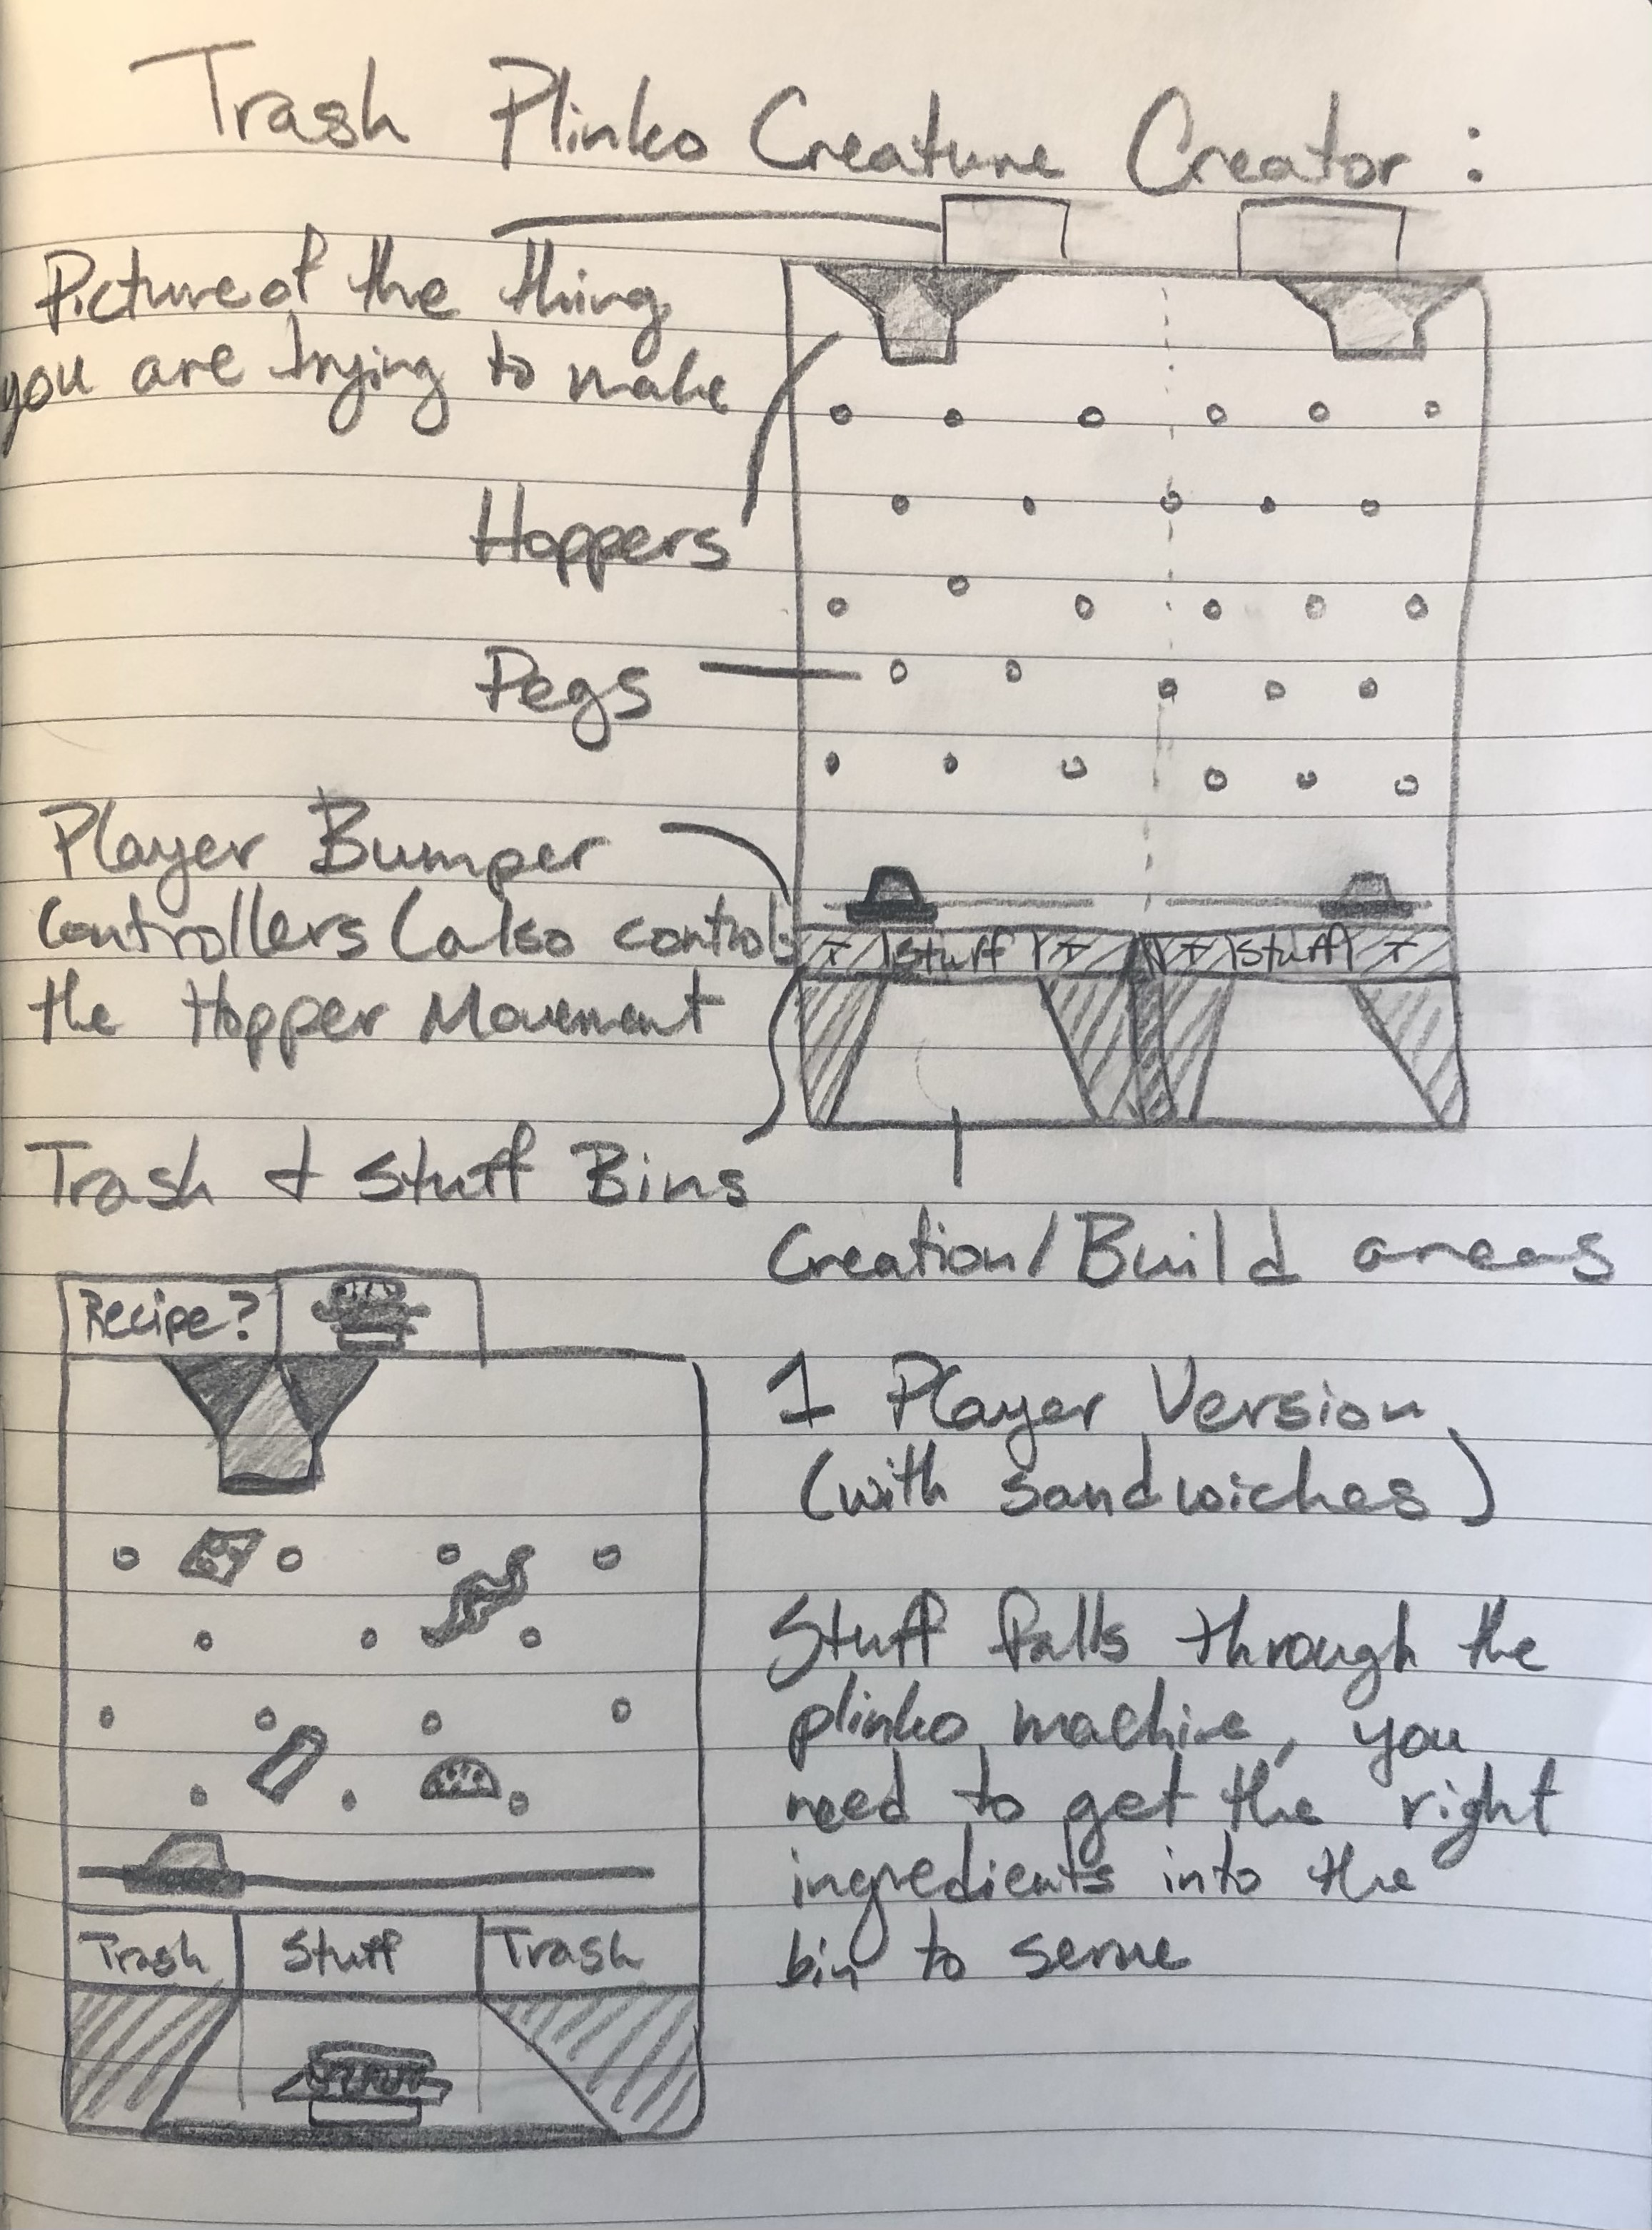 Trash Plinko Creature Creator:
Picture of the thing
you are trying to make
Hoppers
Pegs
Player Bumper
Controllers (also controls
the Hopper Movement
T stuff T T stuff T
Trash & Stuff Bins
Creation/Build areas
Recipe?
1 Player Version
(with sandwiches)
Stuff falls through the
plinko machine, you
need to get the right
ingredients into the
bin to serve
Trash Stuff Trash